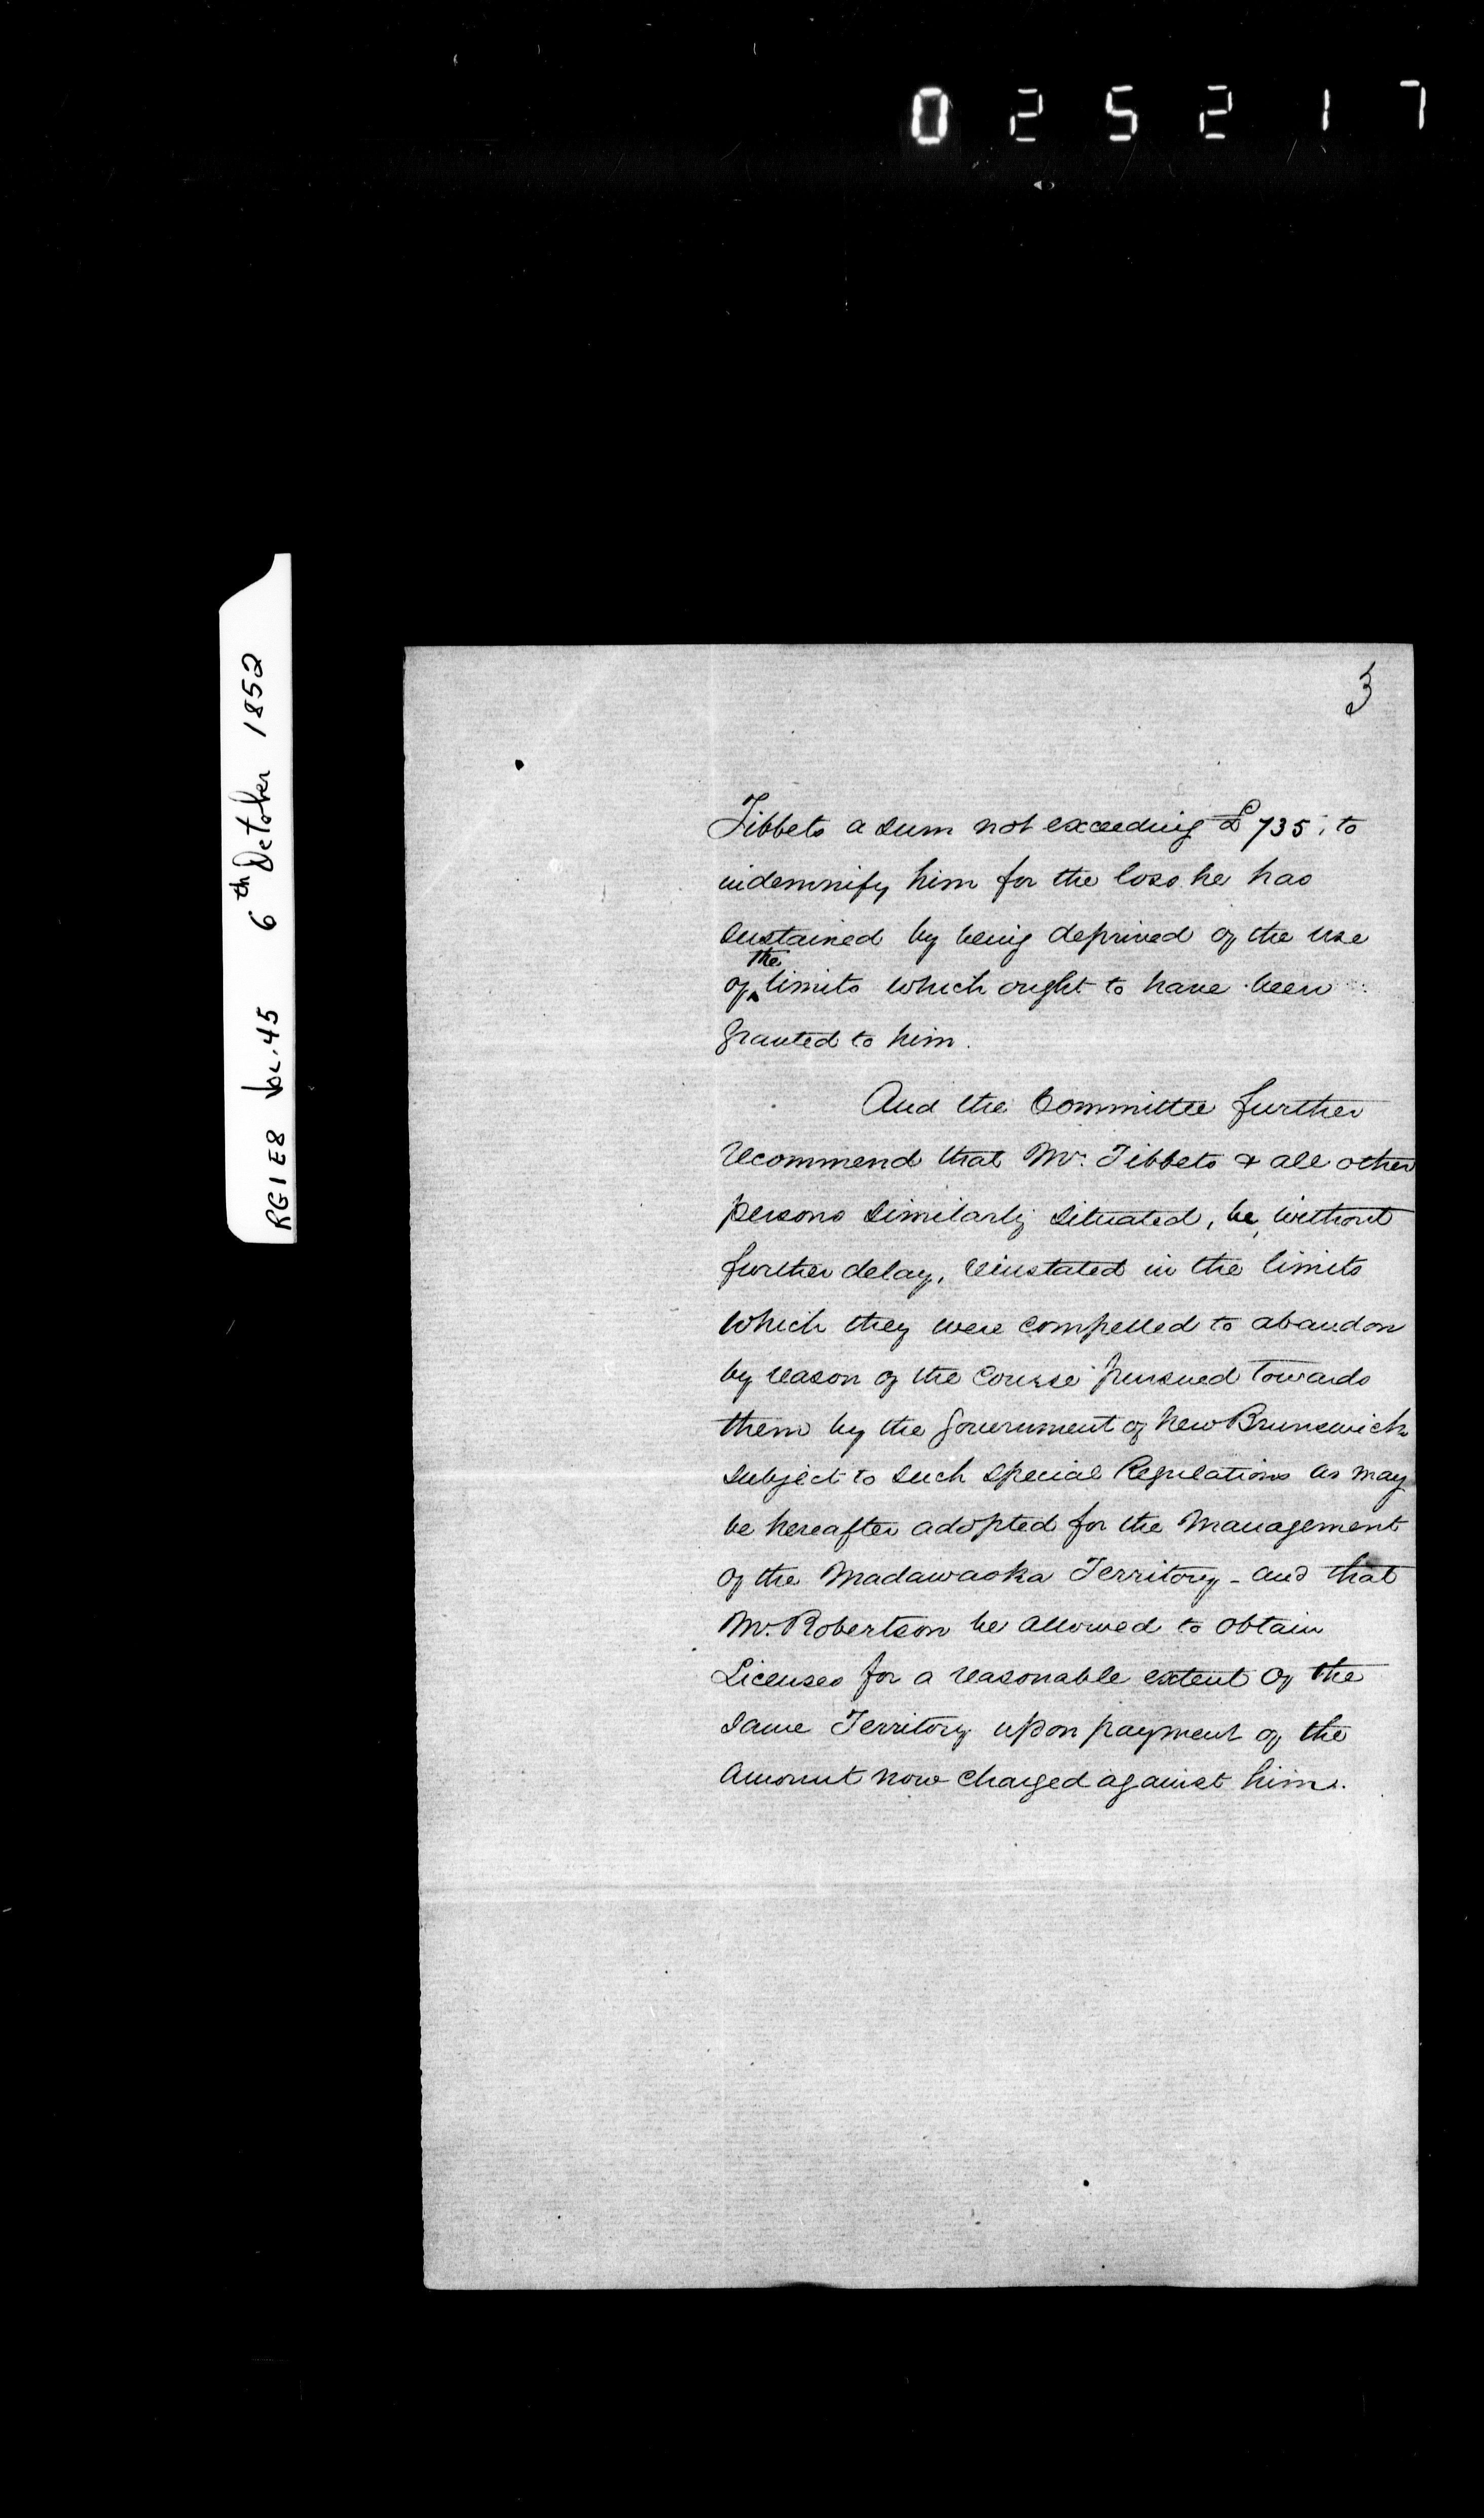 025217
RG1 E8 Vol. 45 6th October 1852
3
Tibbets a sum not exceeding £735, to
indemnify him for the loss he has
sustained by being deprived of the use
of the limits which ought to have been
granted to him.
And the Committee further
recommend that Mr. Tibbets & all other
persons similarly situated, be, without
further delay, reinstated in the limits
which they were compelled to abandon
by reason of the course pursued towards
them by the Government of New Brunswick
subject to such special Regulations as may
be hereafter adopted for the Management
of the Madawaska Territory - and that
Mr. Robertson be allowed to obtain
Licenses for a reasonable extent of the
same Territory upon payment of the
amount now charged against him.